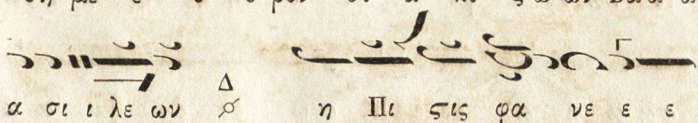 α σι ι λε ων Δ η Πι ςις φα νε ε ε